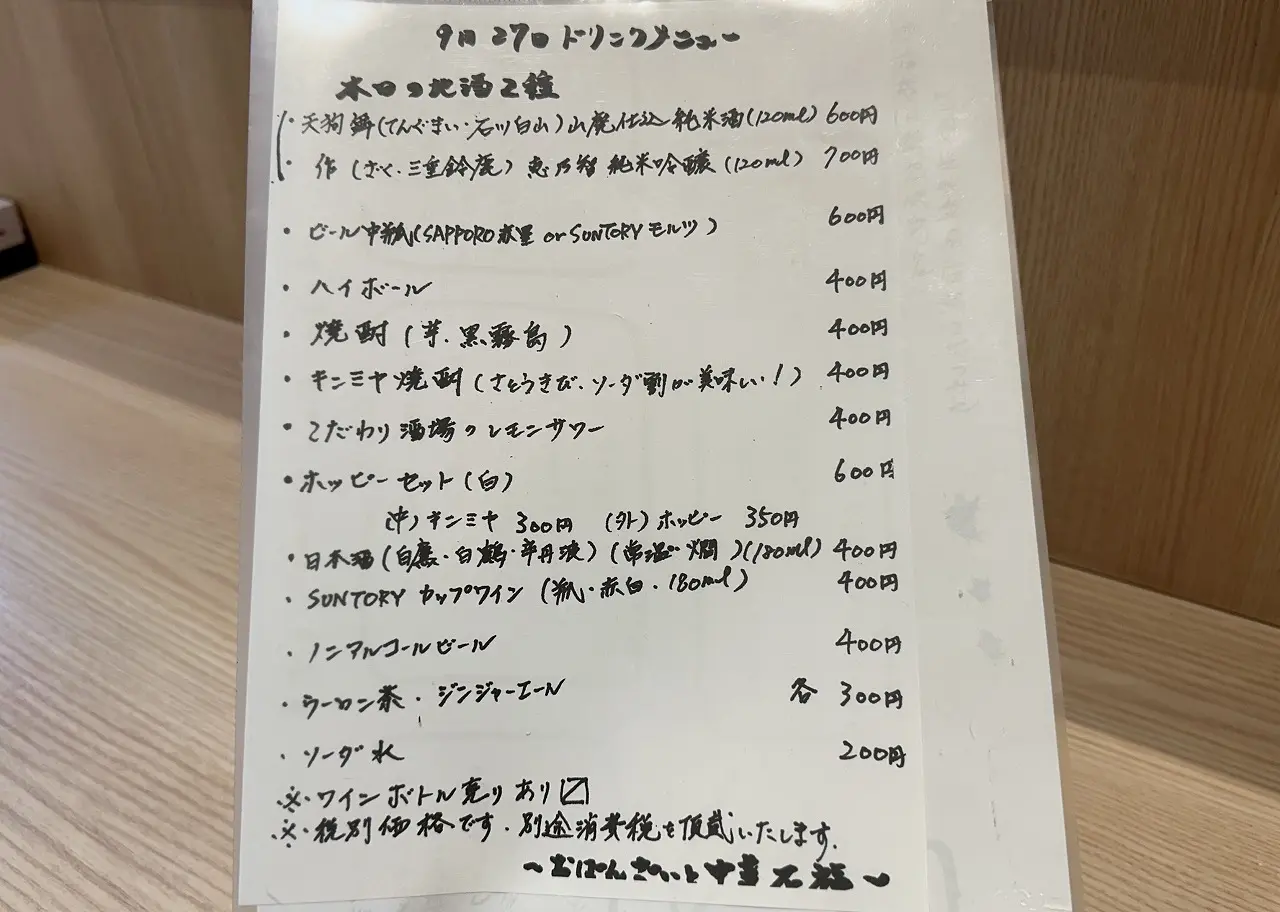 9月27日 ドリンクメニュー
本日の地酒2種
・天狗舞(てんぐまい・石川白山)山廃仕込純米酒(120ml) 600円
・作(さく・三重鈴鹿)恵乃智 純米吟醸(120ml) 700円
・ビール中瓶(SAPPORO赤星 or SUNTORYモルツ) 600円
・ハイボール 400円
・焼酎(芋・黒霧島) 400円
・キンミヤ焼酎(さとうきび・ソーダ割が美味しい!) 400円
・こだわり酒場のレモンサワー 400円
・ホッピーセット(白) 600円
(中)キンミヤ 300円 (外)ホッピー 350円
・日本酒(白鹿・白鶴・辛丹波)(常温・燗)(180ml) 400円
・SUNTORY カップワイン(瓶・赤白・180ml) 400円
・ノンアルコールビール 400円
・ウーロン茶・ジンジャーエール 各 300円
・ソーダ水 200円
※・ワインボトル売りあり
※・税別価格です。別途消費税を頂戴いたします。
〜おばんさいと中華